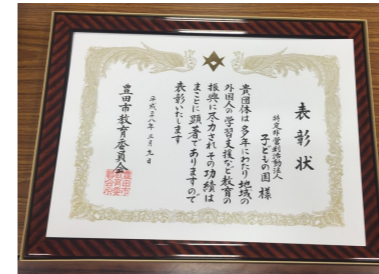 表彰状
特定非営利活動法人
子どもの国 様
貴団体は多年にわたり地域の
外国人の学習支援など教育の
振興に尽力されその功績は
まことに顕著でありますので
表彰いたします
平成二八年二月九日
豊田市教育委員会